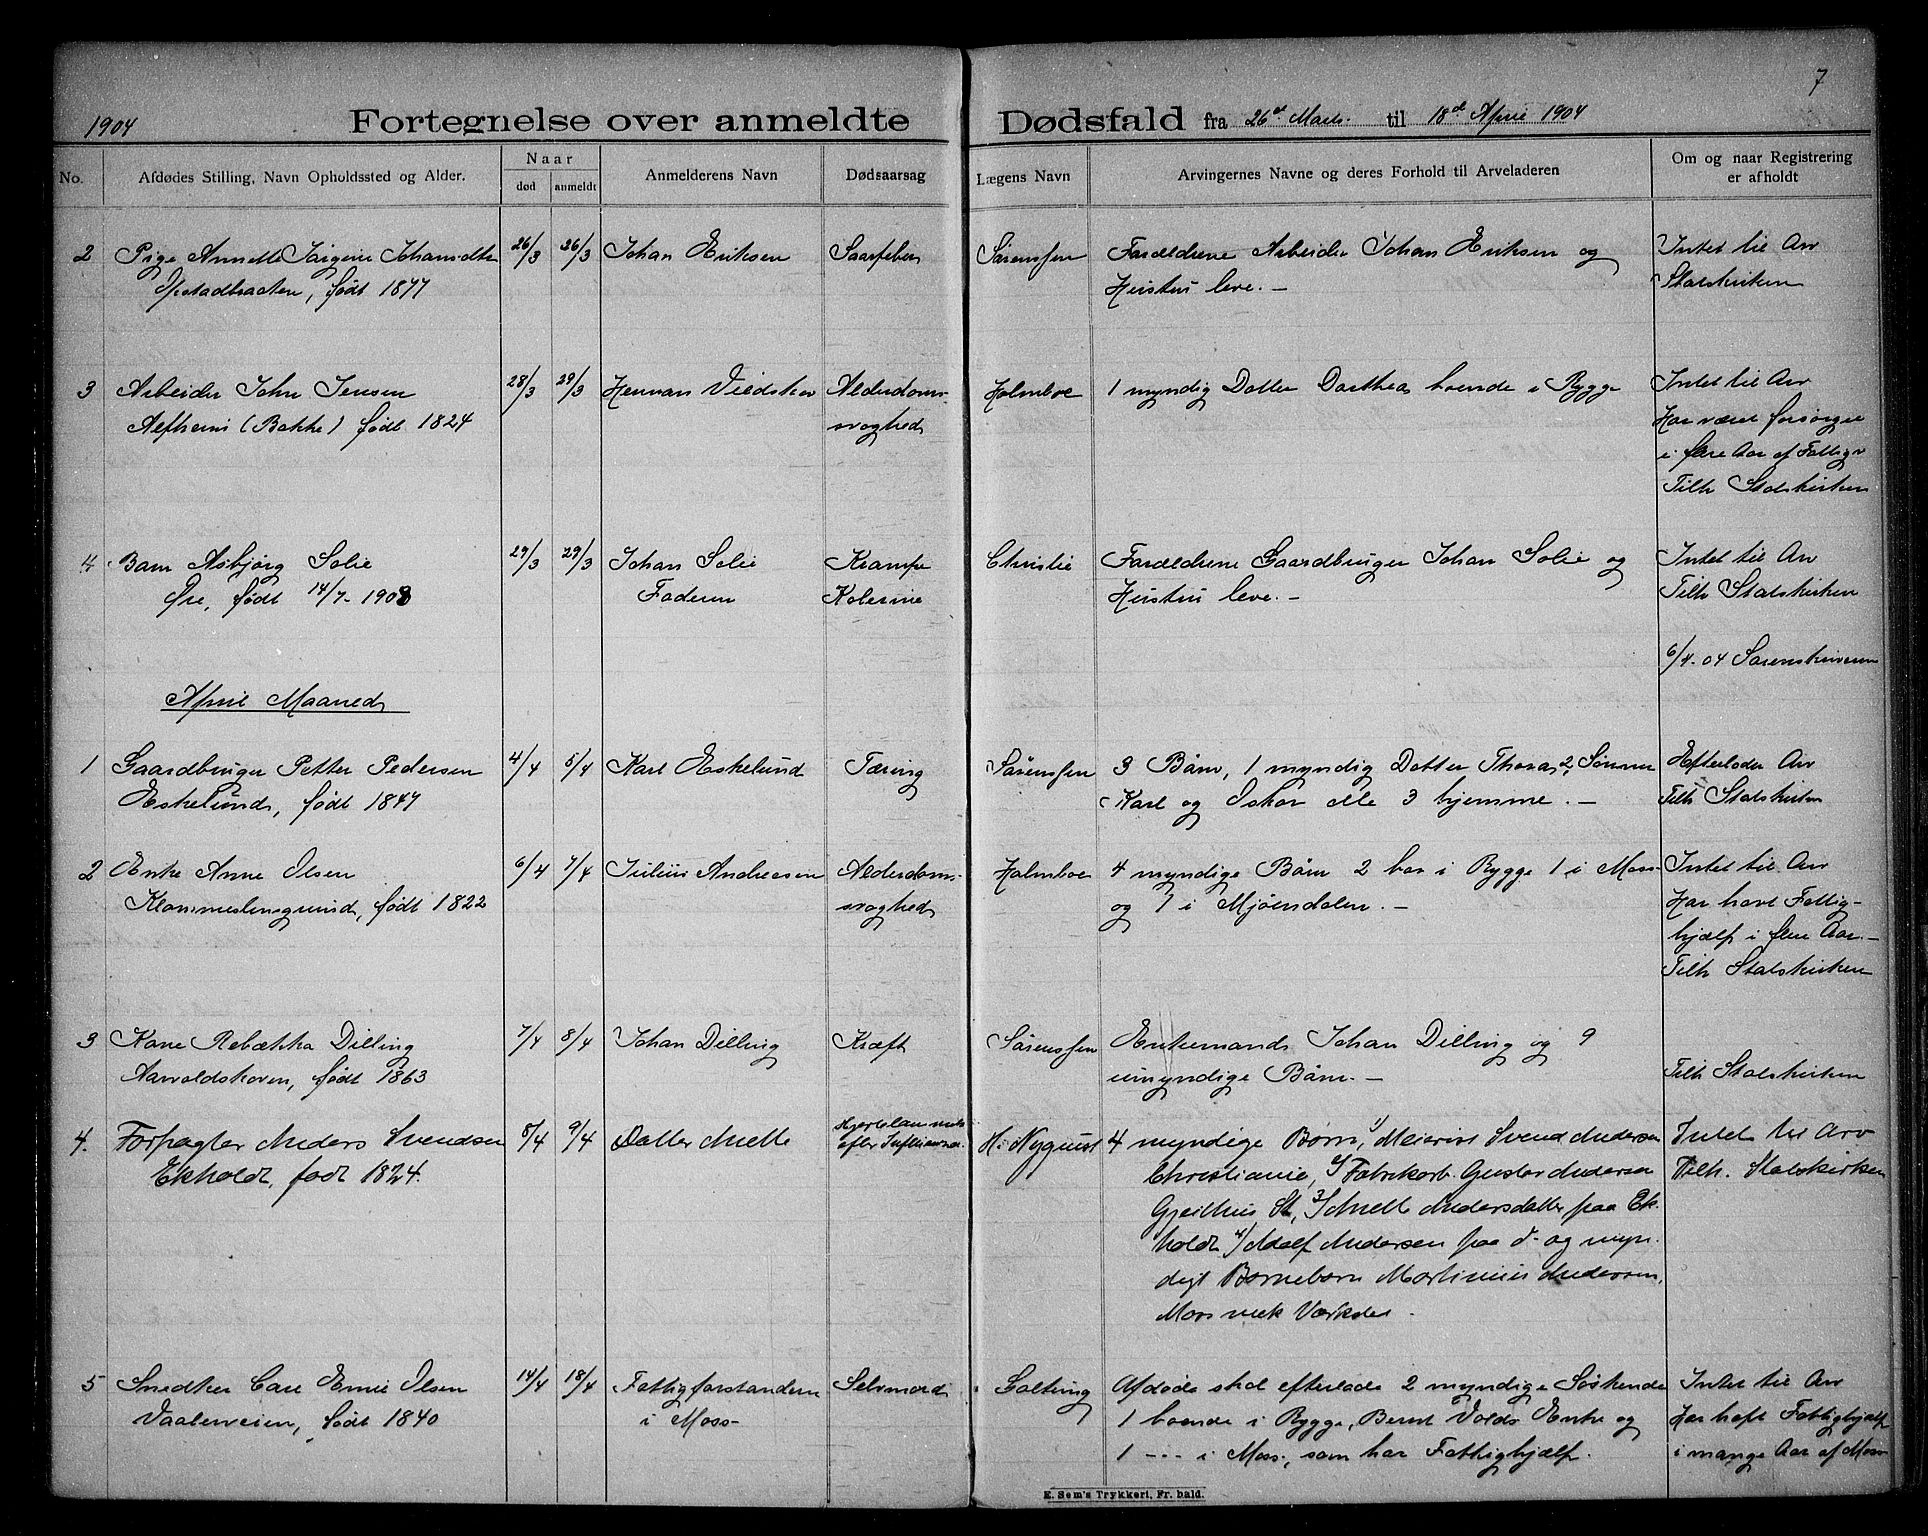 7
1904 Fortegnelse over anmeldte Dødsfald fra 26de Marts til 18de April 1904
No.
Afdødes Stilling, Navn Opholdssted og Alder.
Naar
død anmeldt
Anmelderens Navn
Dødsaarsag
Lægens Navn
Arvingernes Navne og deres Forhold til Arveladeren
Om og naar Registrering
er afholdt
2 Pige Annette Jørgine Johansdtr 26/3 26/3 Johan Eriksen Saarfeber Sørenssen Forældrene Arbeider Johan Eriksen og Intet til Arv
født 1877 Hustru leve. — Statskirken
3 Arbeider John Jensen 28/3 29/3 Herman Alderdoms- Holmboe 1 myndig Datter Dorthea boende i Rygge Intet til Arv
(Bakke) født 1824 svaghed Har været forsørget
i flere Aar af Fattigv
Tilh Statskirken
4 Barn Asbjørg Solie 29/3 29/3 Johan Solie Krampe Christie Forældrene Gaardbruger Johan Solie og Intet til Arv
Øre, født 14/7-1903 Faderen Kolerine Hustru leve. — Tilh Statskirken
6/4-04 Sorenskriveren
April Maaned
1 Gaardbruger Petter Pedersen 4/4 5/4 Karl Eskelund Tæring Sørenssen 3 Børn, 1 myndig Datter Thora, 2 Sønner Efterlader Arv
Eskelund, født 1847 Karl og Oskar alle 3 hjemme. — Tilh Statskirken
2 Enke Anne Olsen 6/4 7/4 Julius Andresen Alderdoms- Holmboe 4 myndige Børn 2 bor i Rygge 1 i Moss Intet til Arv
født 1822 svaghed og 1 i Mjøendalen. — Har havt Fattig-
hjælp i flere Aar. —
Tilh Statskirken
3 Kone Rebækka Dilling 7/4 8/4 Johan Dilling Kræft Sørenssen Enkemand Johan Dilling og 9
Aarvoldskoven, født 1863 umyndige Børn. — Tilh Statskirken
4. Forpagter Anders Svendsen 8/4 9/4 Datter Anette Hjertelammelse H. Nyquist 4 myndige Børn, 1/ Meierist Svend Andersen Intet til Arv
Ekholdt, født 1824. efter Influensa. Christiania, 2/ Fabrikarb. Gustav Andersen Tilh. Statskirken
Gjeithus St, 3/ Anette Andersdatter paa Ek-
holdt 4/ Adolf Andersen paa d- og myn-
digt Barnebarn Martinius Andersen,
Moss Værksted.
5 Snedker Carl Emil Olsen 14/4 18/4 Fattigforstanderen Selvmord Galtung Afdøde skal efterlade 2 myndige Søskende Intet til Arv
Vaalerveien, født 1840 i Moss 1 boende i Rygge, Bernt Volds Enke og Har haft Fattighjælp
1 --- i Moss, som har Fattighjælp. i mange Aar af Moss
E. Sem's Trykkeri, Fr. hald.